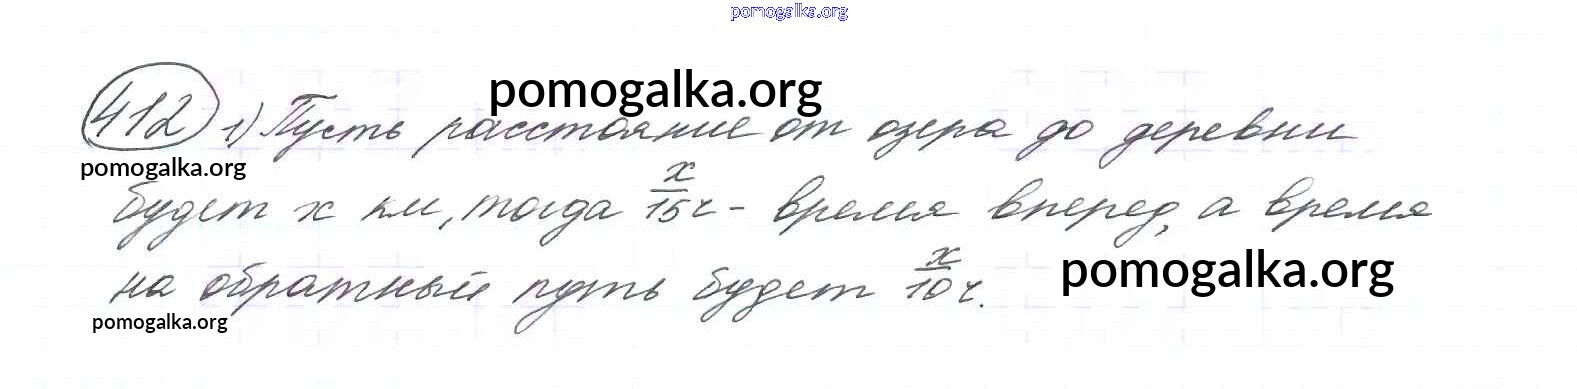 pomogalka.org
pomogalka.org
412 1) Пусть расстояние от озера до деревни
pomogalka.org
будет x км, тогда x/15 ч - время вперед, а время
на обратный путь будет x/10 ч.
pomogalka.org
pomogalka.org